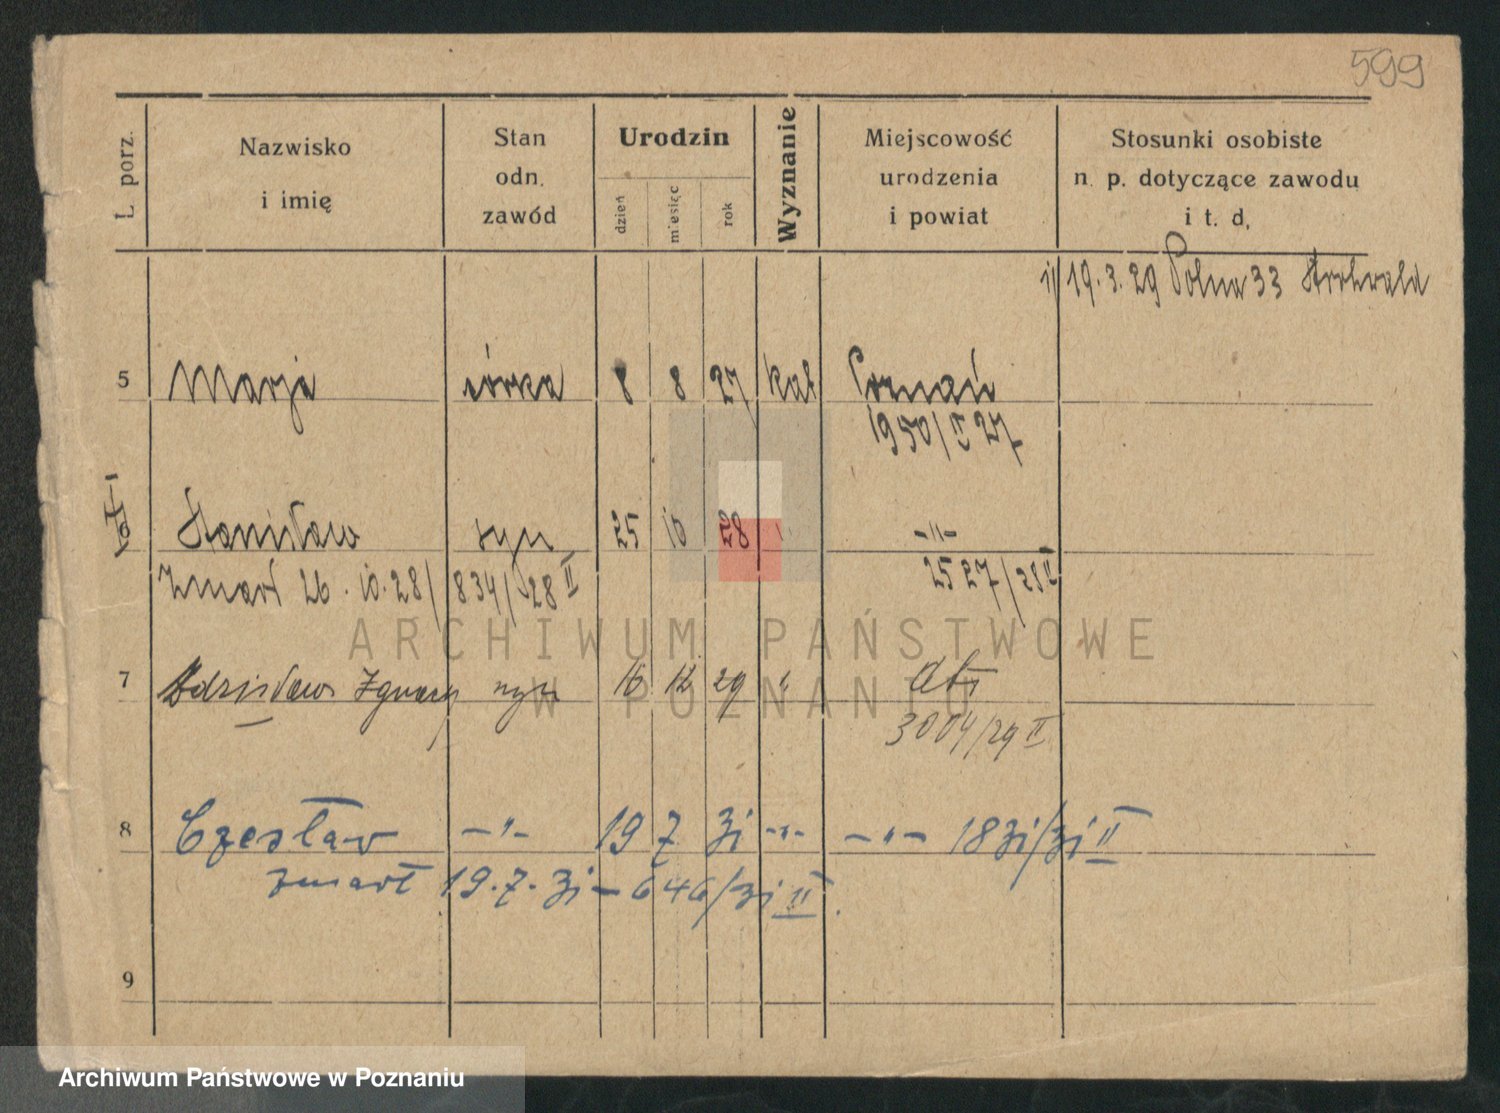 599
L. porz.
Nazwisko
i imię
Stan
odn.
zawód
Urodzin
dzień
miesięc
rok
Wyznanie
Miejscowość
urodzenia
i powiat
Stosunki osobiste
n. p. dotyczące zawodu
i t. d.
19.3.29 Polna 33
5 Marja córka 8 8 27 kat Poznań
1950/II 27
Stanisław syn 25 10 28 -"-
Zmarł 26.10.28/ 834/28 II 2527/28 II
7 Zdzisław Ignacy syn 16 12 29 "
3004/29 II
8 Czesław -"- 19 7 31 -"- -"- 1831/31 II
zmarł 19.7.31 - 646/31 II.
9
ARCHIWUM PAŃSTWOWE
W POZNANIU
Archiwum Państwowe w Poznaniu